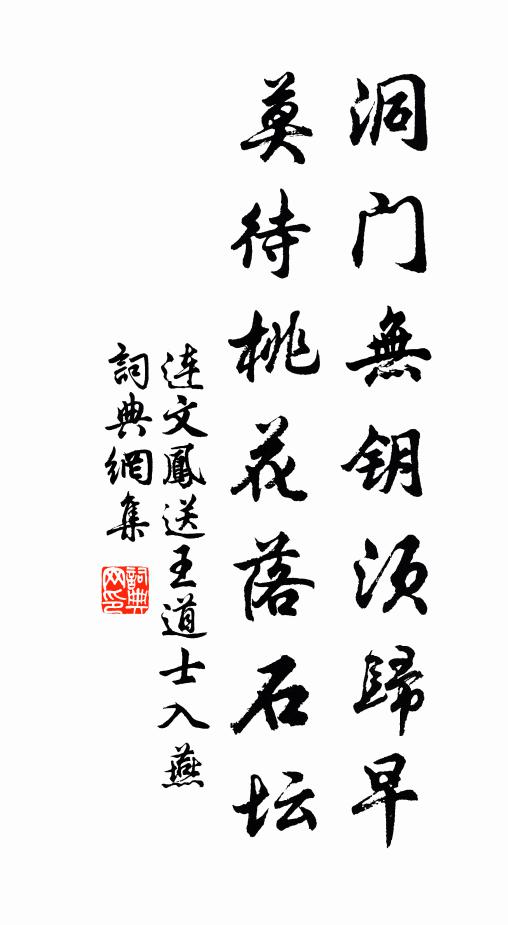 洞门無钥须歸早
莫待桃花落石坛
连文鳳送王道士入燕
詞典網集
詞典网印